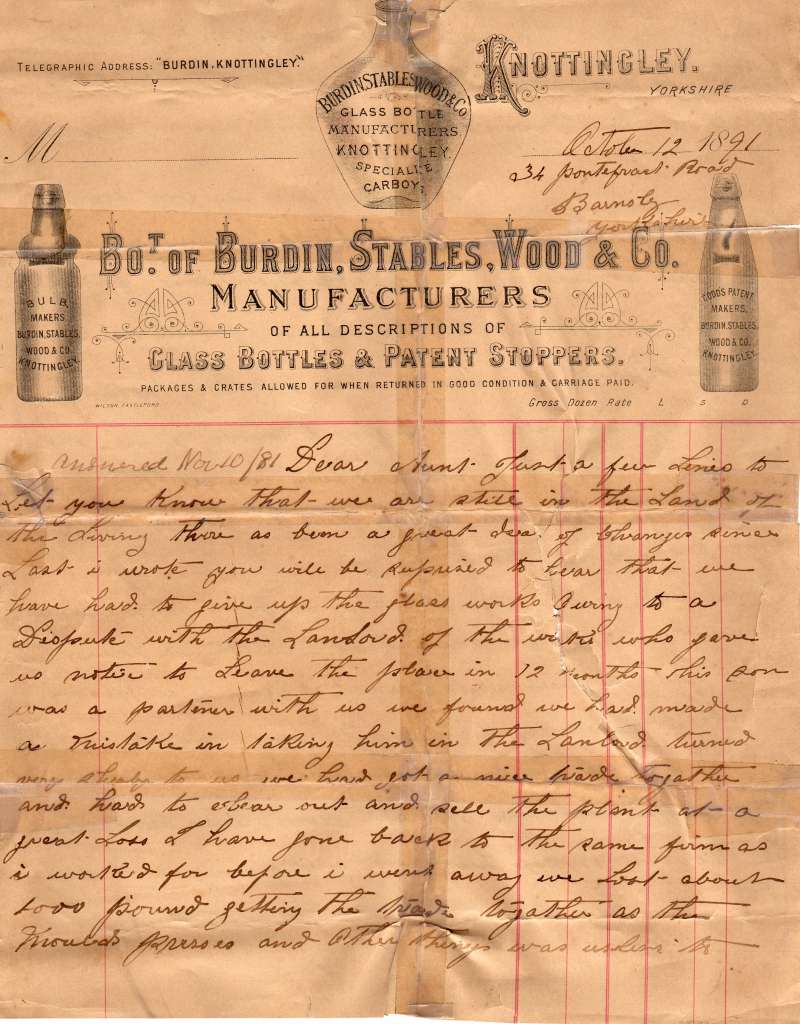 TELEGRAPHIC ADDRESS: "BURDIN, KNOTTINGLEY."
BURDIN STABLES WOOD & Co
GLASS BOTTLE
MANUFACTURERS
KNOTTINGLEY.
SPECIALITE
CARBOYS
KNOTTINGLEY.
YORKSHIRE
M
October 12 1891
34 pontefract Road
Barnsley
yorkshire
BOT. OF BURDIN, STABLES, WOOD & Co.
MANUFACTURERS
OF ALL DESCRIPTIONS OF
GLASS BOTTLES & PATENT STOPPERS.
PACKAGES & CRATES ALLOWED FOR WHEN RETURNED IN GOOD CONDITION & CARRIAGE PAID.
BULB
MAKERS
BURDIN, STABLES,
WOOD & CO
KNOTTINGLEY
CODD'S PATENT
MAKERS,
BURDIN, STABLES,
WOOD & CO.
KNOTTINGLEY
WILTON CASTLEFORD
Gross Dozen Rate L S D
answered Nov 10/81 Dear Aunt Just a few Lines to
Let you Know that we are still in the Land of
the Living there as been a great dea of Changes since
Last i wrote you will be suprised to hear that we
have had to give up the glass works Owing to a
Dispute with the Landlord of the works who gave
us notice to Leave the place in 12 months his son
was a partener with us we found we had made
a mistake in taking him in the Lanlord turned
very shaby to us we had got a nice trade together
and had to clear out and sell the plant at a
great Loss I have gone back to the same firm as
i worked for before i went away we Lost about
1000 pound getting the trade together as the
Moulds presses and Other things was usless to